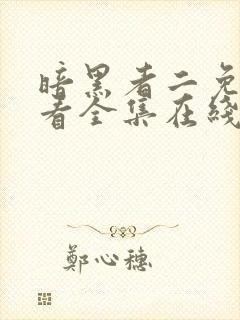 暗黑者二免
看全集在线
鄭心穗